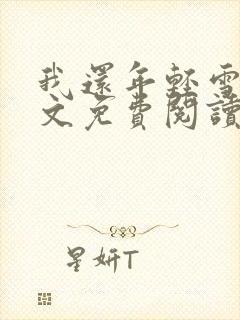 我還年輕雪
文免費閱讀
星妍T